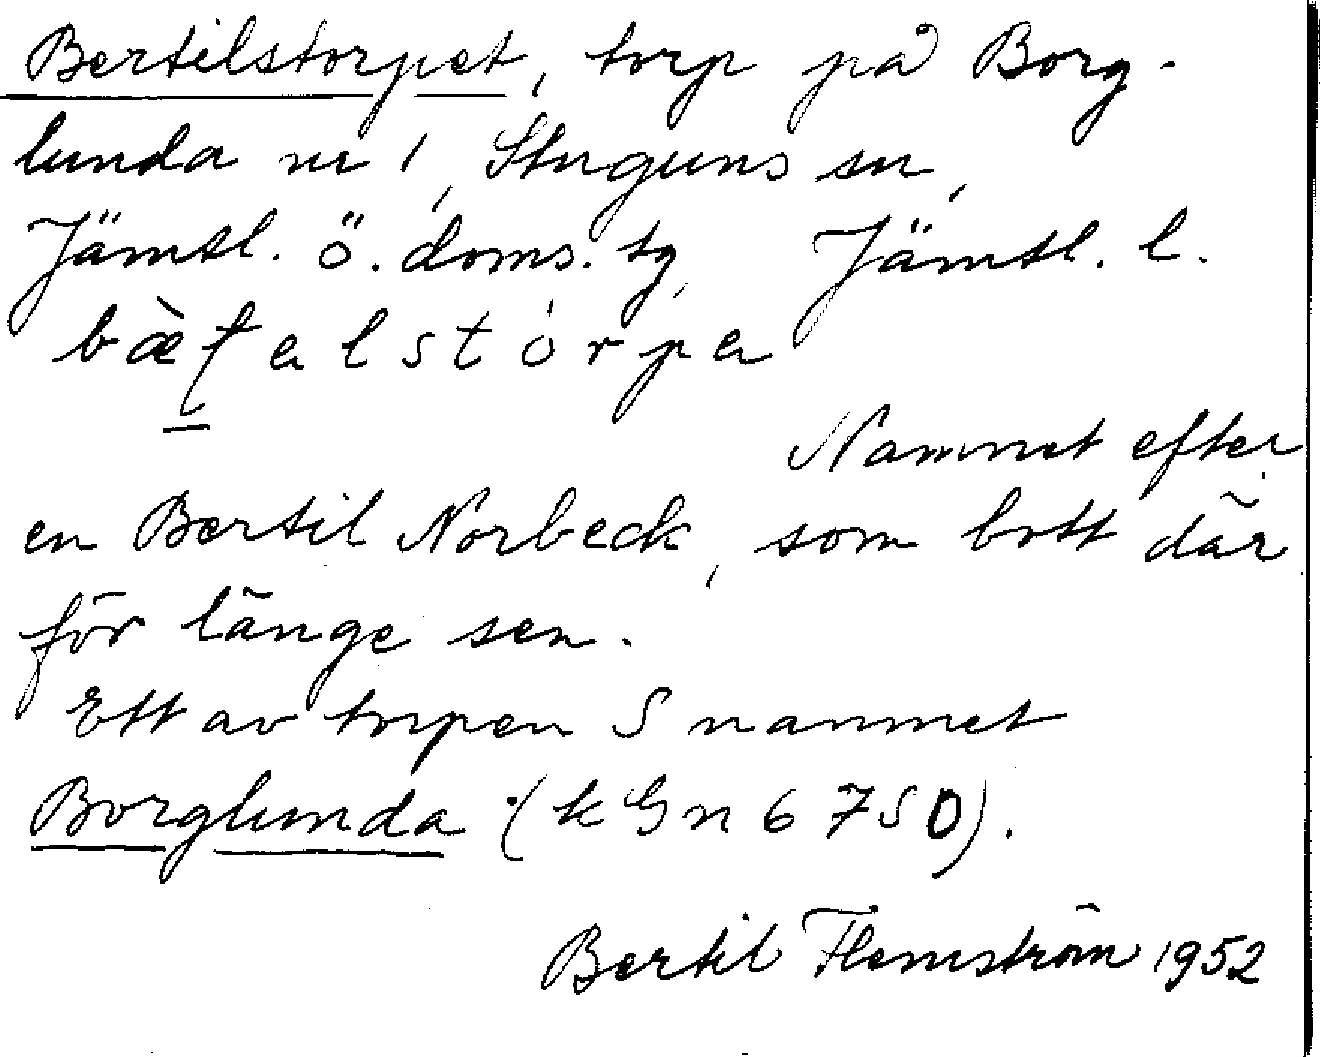 Bertilstorpet, torp på Borg-
lunda nr 1, Stuguns sn,
Jämtl. ö. doms. tg, Jämtl. l.
Namnet efter
en Bertil Norbeck, som bott där
för länge sen.
Ett av torpen S namnet
Borglunda (k Gn 6750).
Bertil Flemström 1952